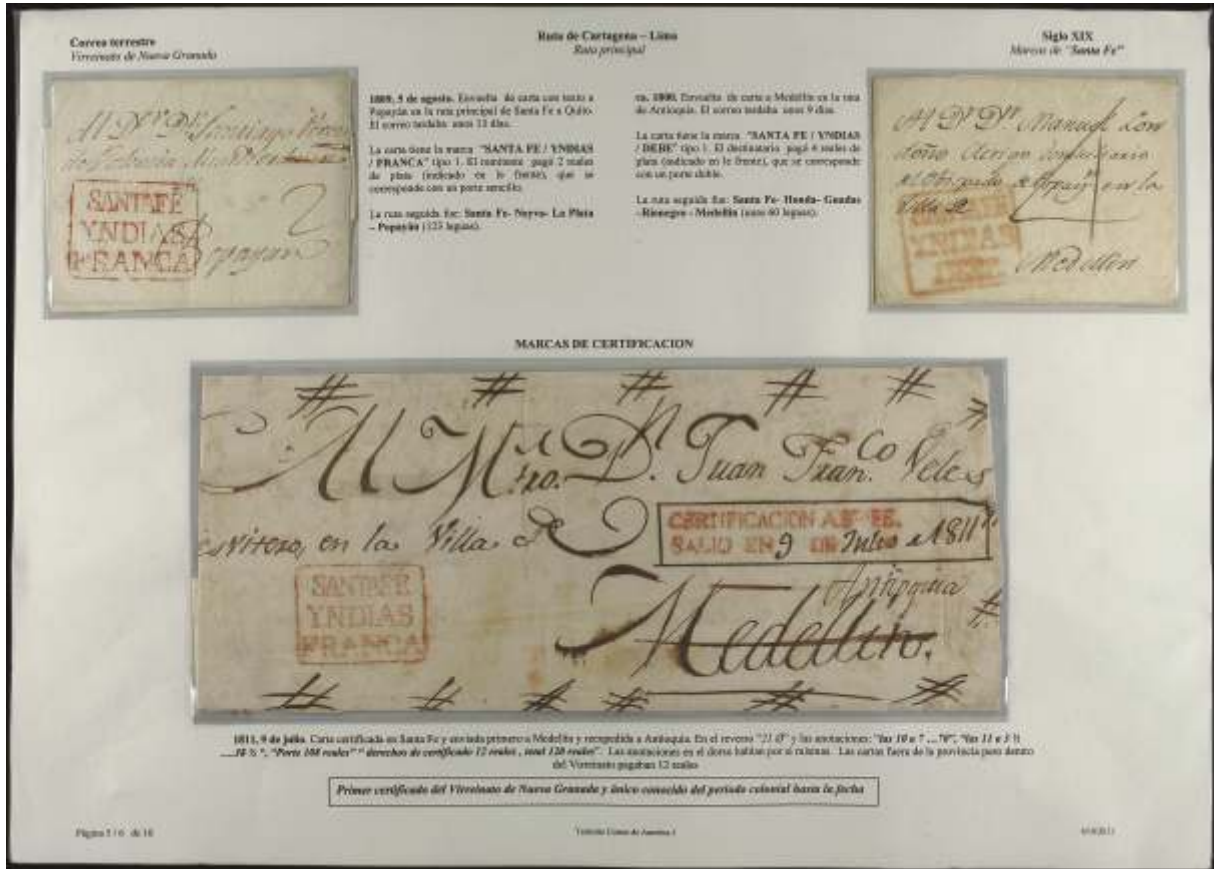 Correo terrestre
Virreinato de Nueva Granada
Ruta de Cartagena – Lima
Ruta principal
Siglo XIX
Marcas de "Santa Fe"
Al Dr. Dn. Santiago
SANTAFÉ
YNDIAS
FRANCA
2
Popayan
1809, 5 de agosto. Envuelta de carta con texto a
Popayán en la ruta principal de Santa Fe a Quito.
El correo tardaba unos 13 días.
La carta tiene la marca "SANTA FE / YNDIAS
/ FRANCA" tipo 1. El remitente pagó 2 reales
de plata (indicado en lo frente), que se
corresponde con un porte sencillo.
La ruta seguida fue: Santa Fe- Neyva- La Plata
– Popayán (123 leguas).
ca. 1800. Envuelta de carta a Medellín en la ruta
de Antioquia. El correo tardaba unos 9 días.
La carta tiene la marca "SANTA FE / YNDIAS
/ DEBE" tipo 1. El destinatario pagó 4 reales de
plata (indicado en lo frente), que se corresponde
con un porte doble.
La ruta seguida fue: Santa Fe- Honda- Guadas
-Rionegro - Medellín (unas 60 leguas).
Al Dr. Dn. Manuel Lon
doño Clerigo
el Obispado de Popayn en la
Villa de
YNDIAS
Medellin
MARCAS DE CERTIFICACION
# # # # # #
Al Mro. Dn. Juan Franco Veles
en la Villa de
CERTIFICACION A SF. FE.
SALIO EN 9 DE Julio a 1811
SANTAFE
YNDIAS
FRANCA
Antioquia
Medellin.
#
# # # # # #
1811, 9 de julio. Carta certificada en Santa Fe y enviada primero a Medellín y reexpedida a Antioquia. En el reverso "21 Ø" y las anotaciones: "las 10 a 7 ...70", "las 11 a 3 ½
....38 ½ ", "Porte 108 reales" " derechos de certificado 12 reales , total 120 reales". Las anotaciones en el dorso hablan por si mismas. Las cartas fuera de la provincia pero dentro
del Virreinato pagaban 12 reales
Primer certificado del Virreinato de Nueva Granada y único conocido del período colonial hasta la fecha
Página 5 / 6 de 10